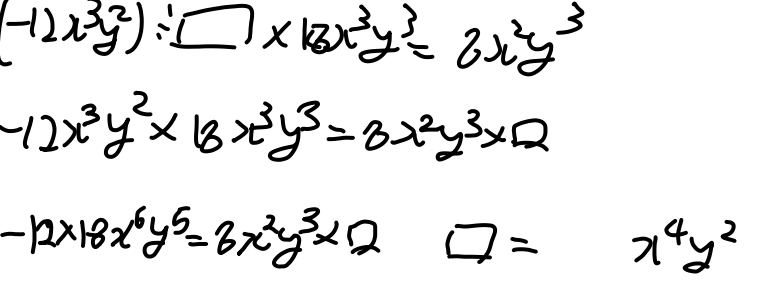 (-12x³y²) ÷ □ × 18x³y³ = 8x²y³
-12x³y² × 18x³y³ = 8x²y³ × □
-12×18x⁶y⁵ = 8x²y³ × □ □ = x⁴y²